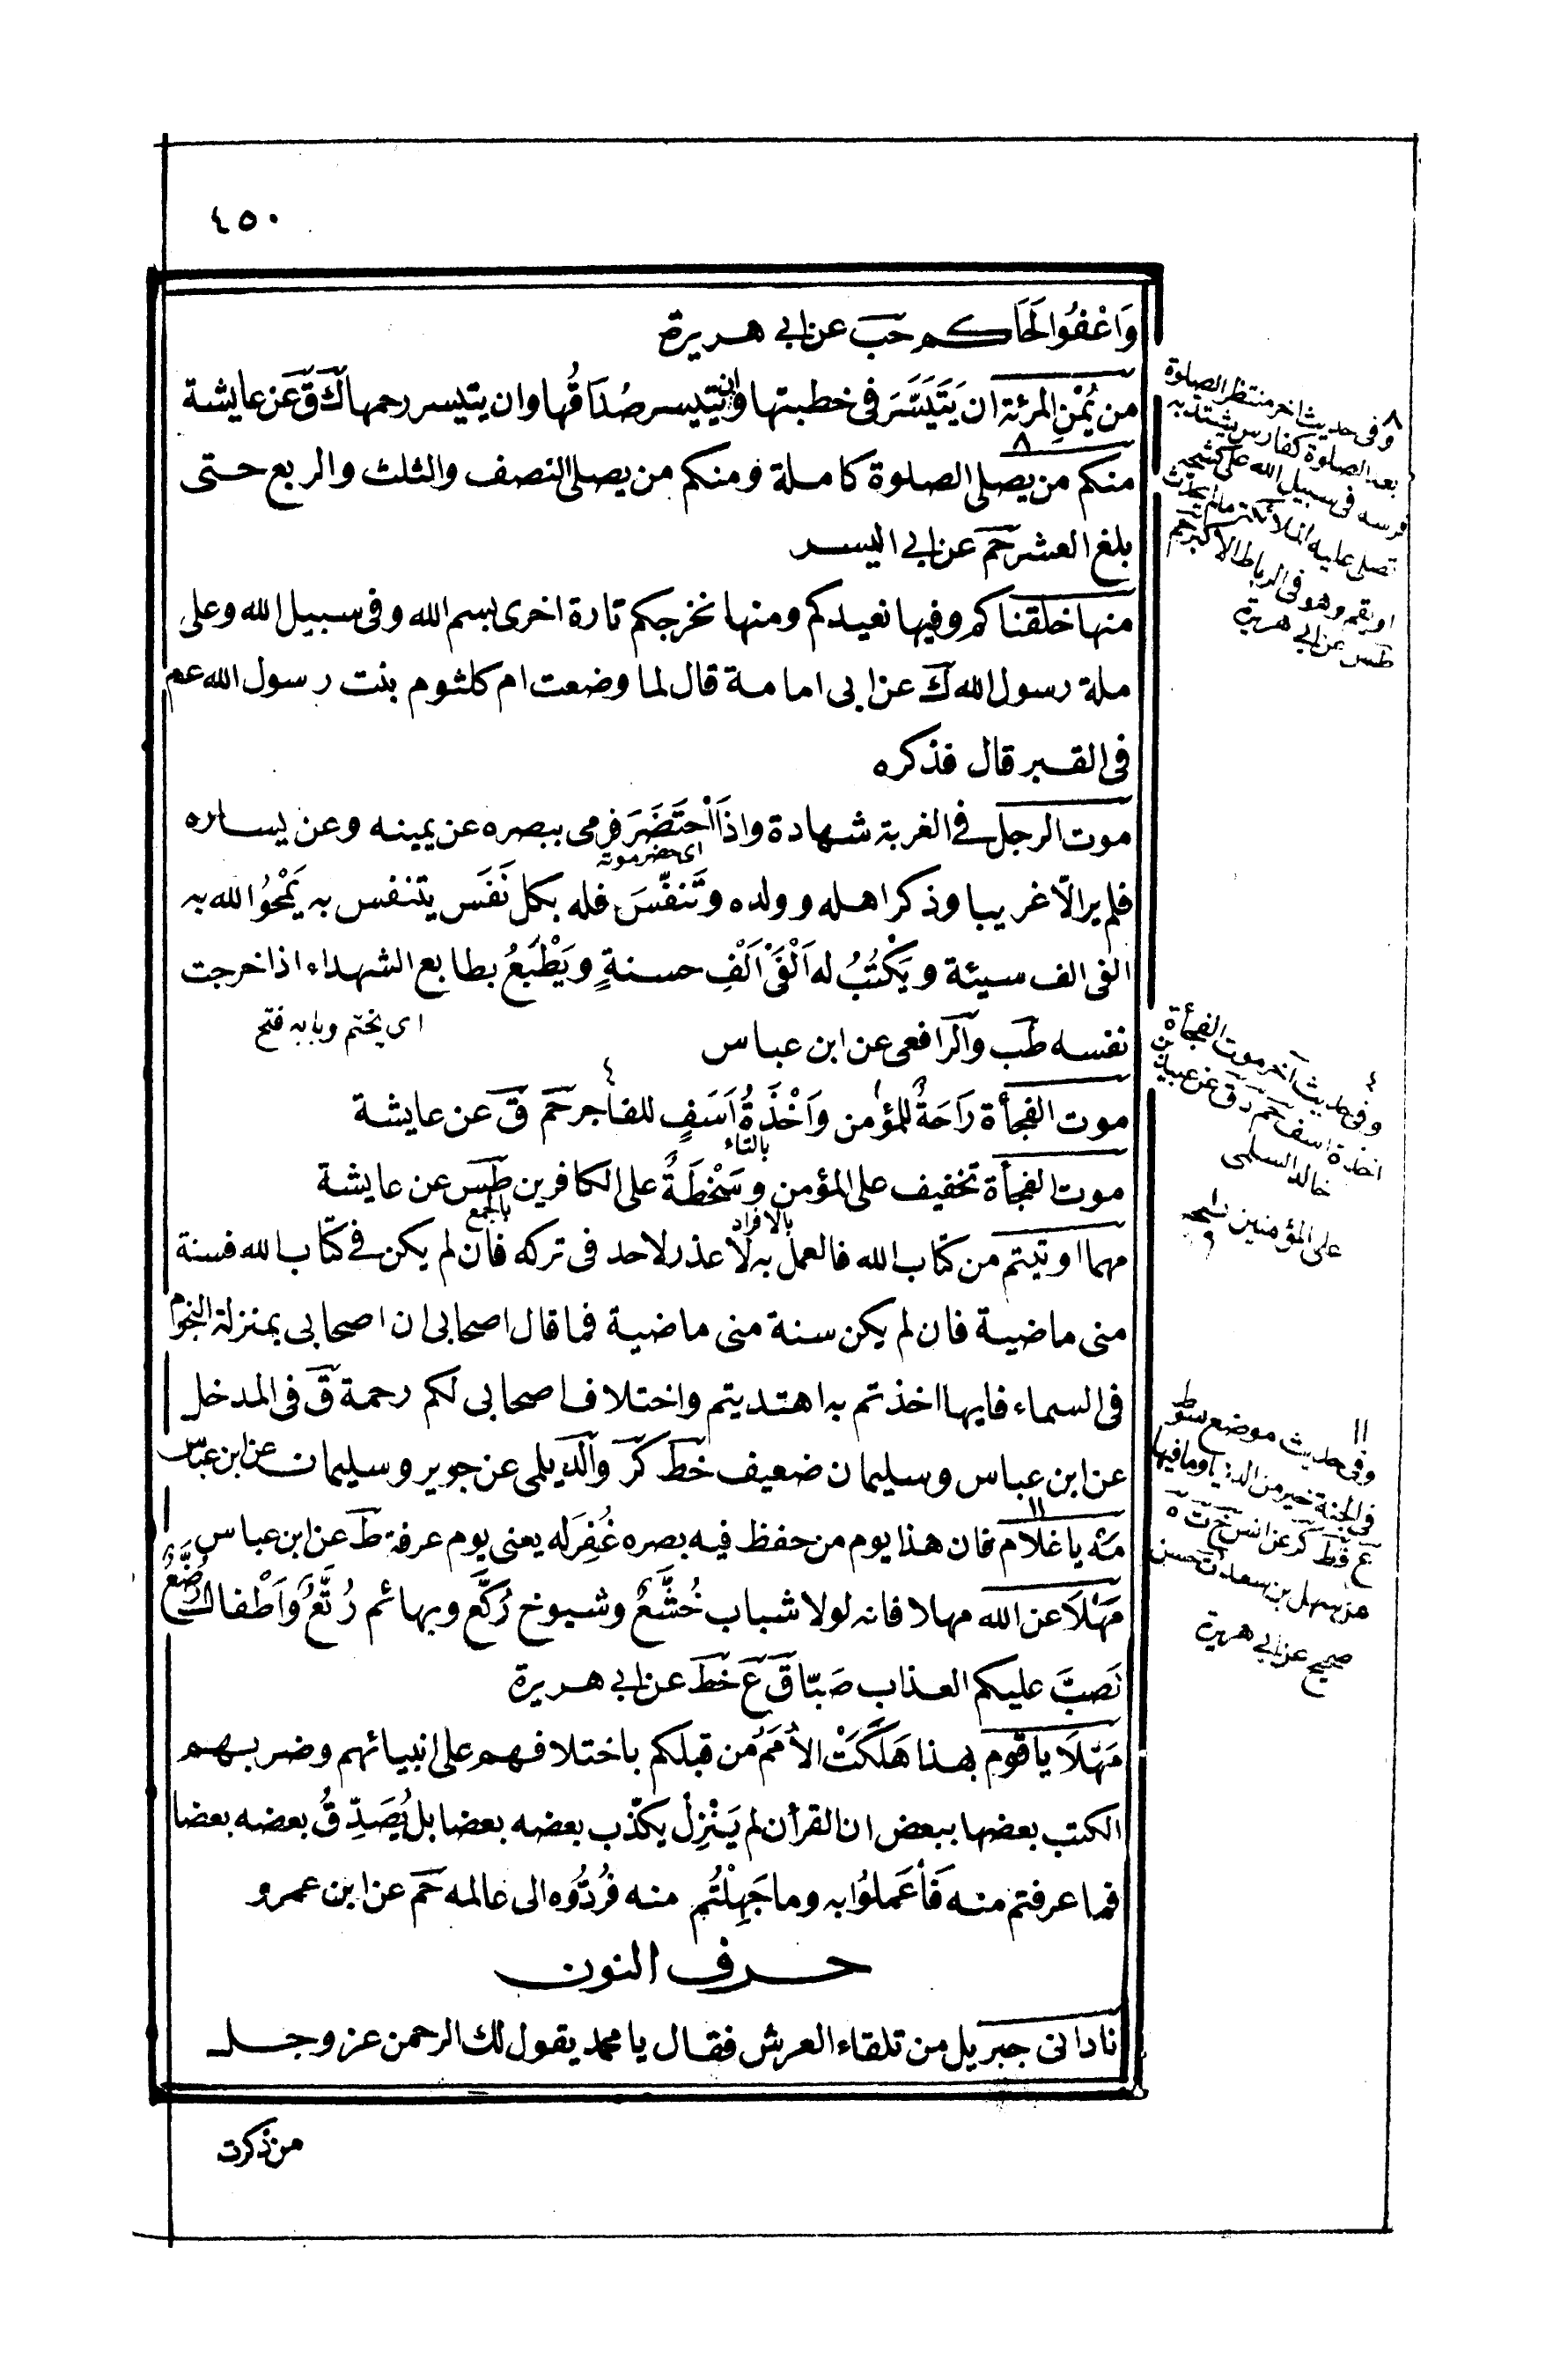 ٤٥٠
وَاعْفُوا لَحَاكم حب عن ابي هريرة
من يُمْنِ المرئة ان يَتَيَسَّرَ في خطبتها وان يتيسر صُدَاقُها وان يتيسر رحمها ك ق عن عايشة
منكم من يصلى الصلوة كاملة ومنكم من يصلى النصف والثلث والربع حتى
بلغ العشر حم عن ابي اليسر
منها خلقناكم وفيها نعيدكم ومنها نخرجكم تارة اخرى بسم الله وفى سبيل الله وعلى
ملة رسول الله ك عن ابى امامة قال لما وضعت ام كلثوم بنت رسول الله عم
فى القبر قال فذكره
موت الرجل في الغربة شهادة واذا احْتَضَرَ فرمى ببصره عن يمينه وعن يساره
اى حضر موته
فلم ير الّا غريبا وذكر اهله وولده وتَنفّسَ فله بكل نَفَس يتنفس به يَمْحُوا الله به
الفى الف سيئة ويَكْتُبُ له اَلْفَىْ اَلْفِ حسنةٍ ويَطْبَعُ بطابع الشهداء اذا خرجت
اى يختم وبابه فتح
نفسه طب والرافعى عن ابن عباس
موت الفجأة رَاحَةٌ للمؤمن وَاَخْذَةُ اَسَفٍ للفاجر حم ق عن عايشة
٤
بالتاء
موت الفجأة تخفيف على المؤمن وسَخْطَةٌ على الكافرين طس عن عايشة
بالافراد
بالجمع
مهما اوتيتم من كتاب الله فالعمل به لا عذر لاحد فى تركه فان لم يكن في كتاب الله فسنة
منى ماضية فان لم يكن سنة منى ماضية فما قال اصحابى ان اصحابى بمنزلة النجوم
فى السماء فايها اخذتم به اهتديتم واختلاف اصحابى لكم رحمة ق فى المدخل
عن ابن عباس وسليمان ضعيف خط كر والديلمى عن جوير وسليمان عن ابن عباس
مَهْ يا غلام فان هذا يوم من حفظ فيه بصره غُفِرَ له يعنى يوم عرفة ط عن ابن عباس
مَهْلَا عن الله مهلا فانه لولا شباب خُشَّعٌ وشيوخ رُكَّع وبهائم رُتَّعٌ وَاَطْفال رُضَّعٌ
نَصَبَّ عليكم العذاب صَبّا ق ع خط عن ابي هريرة
مَهْلَا يا قوم بهذا هَلَكَتْ الأمَمُ من قبلكم باختلافهم على انبيائهم وضربهم
الكتب بعضها ببعض ان القرأن لم يَنْزِلْ يكذّب بعضه بعضا بل يُصَدِّقُ بعضه بعضا
فما عرفتم منه فَأعْمَلوُا به وما جَهِلْتُم منه فَرُدُّوه الى عالمه حم عن ابن عمرو
حرف النون
نادانى جبريل من تلقاء العرش فقال يا محمد يقول لك الرحمن عز وجل
من ذكرت
٨
وفى حديث اخر منتظر الصلوة
بعد الصلوة كفارس يشتد به
فرسه فى سبيل الله على كشحه
تصلى عليه الملائكة مالم يحدث
او يقم وهو فى الرباط الاكبر حم
طس عن ابى هريرة
٤
وفى حديث آخر موت الفجأة
اخذة اسف حم د ق عن عبيد بن
خالد السلمى
على المؤمنين نسخه
١١
وفى حديث موضع سوط
فى الجنة خير من الدنيا وما فيها
ع قط كر عن انس خ ت ه
عن سهل بن سعد ت حسن
صحيح عن ابى هريرة